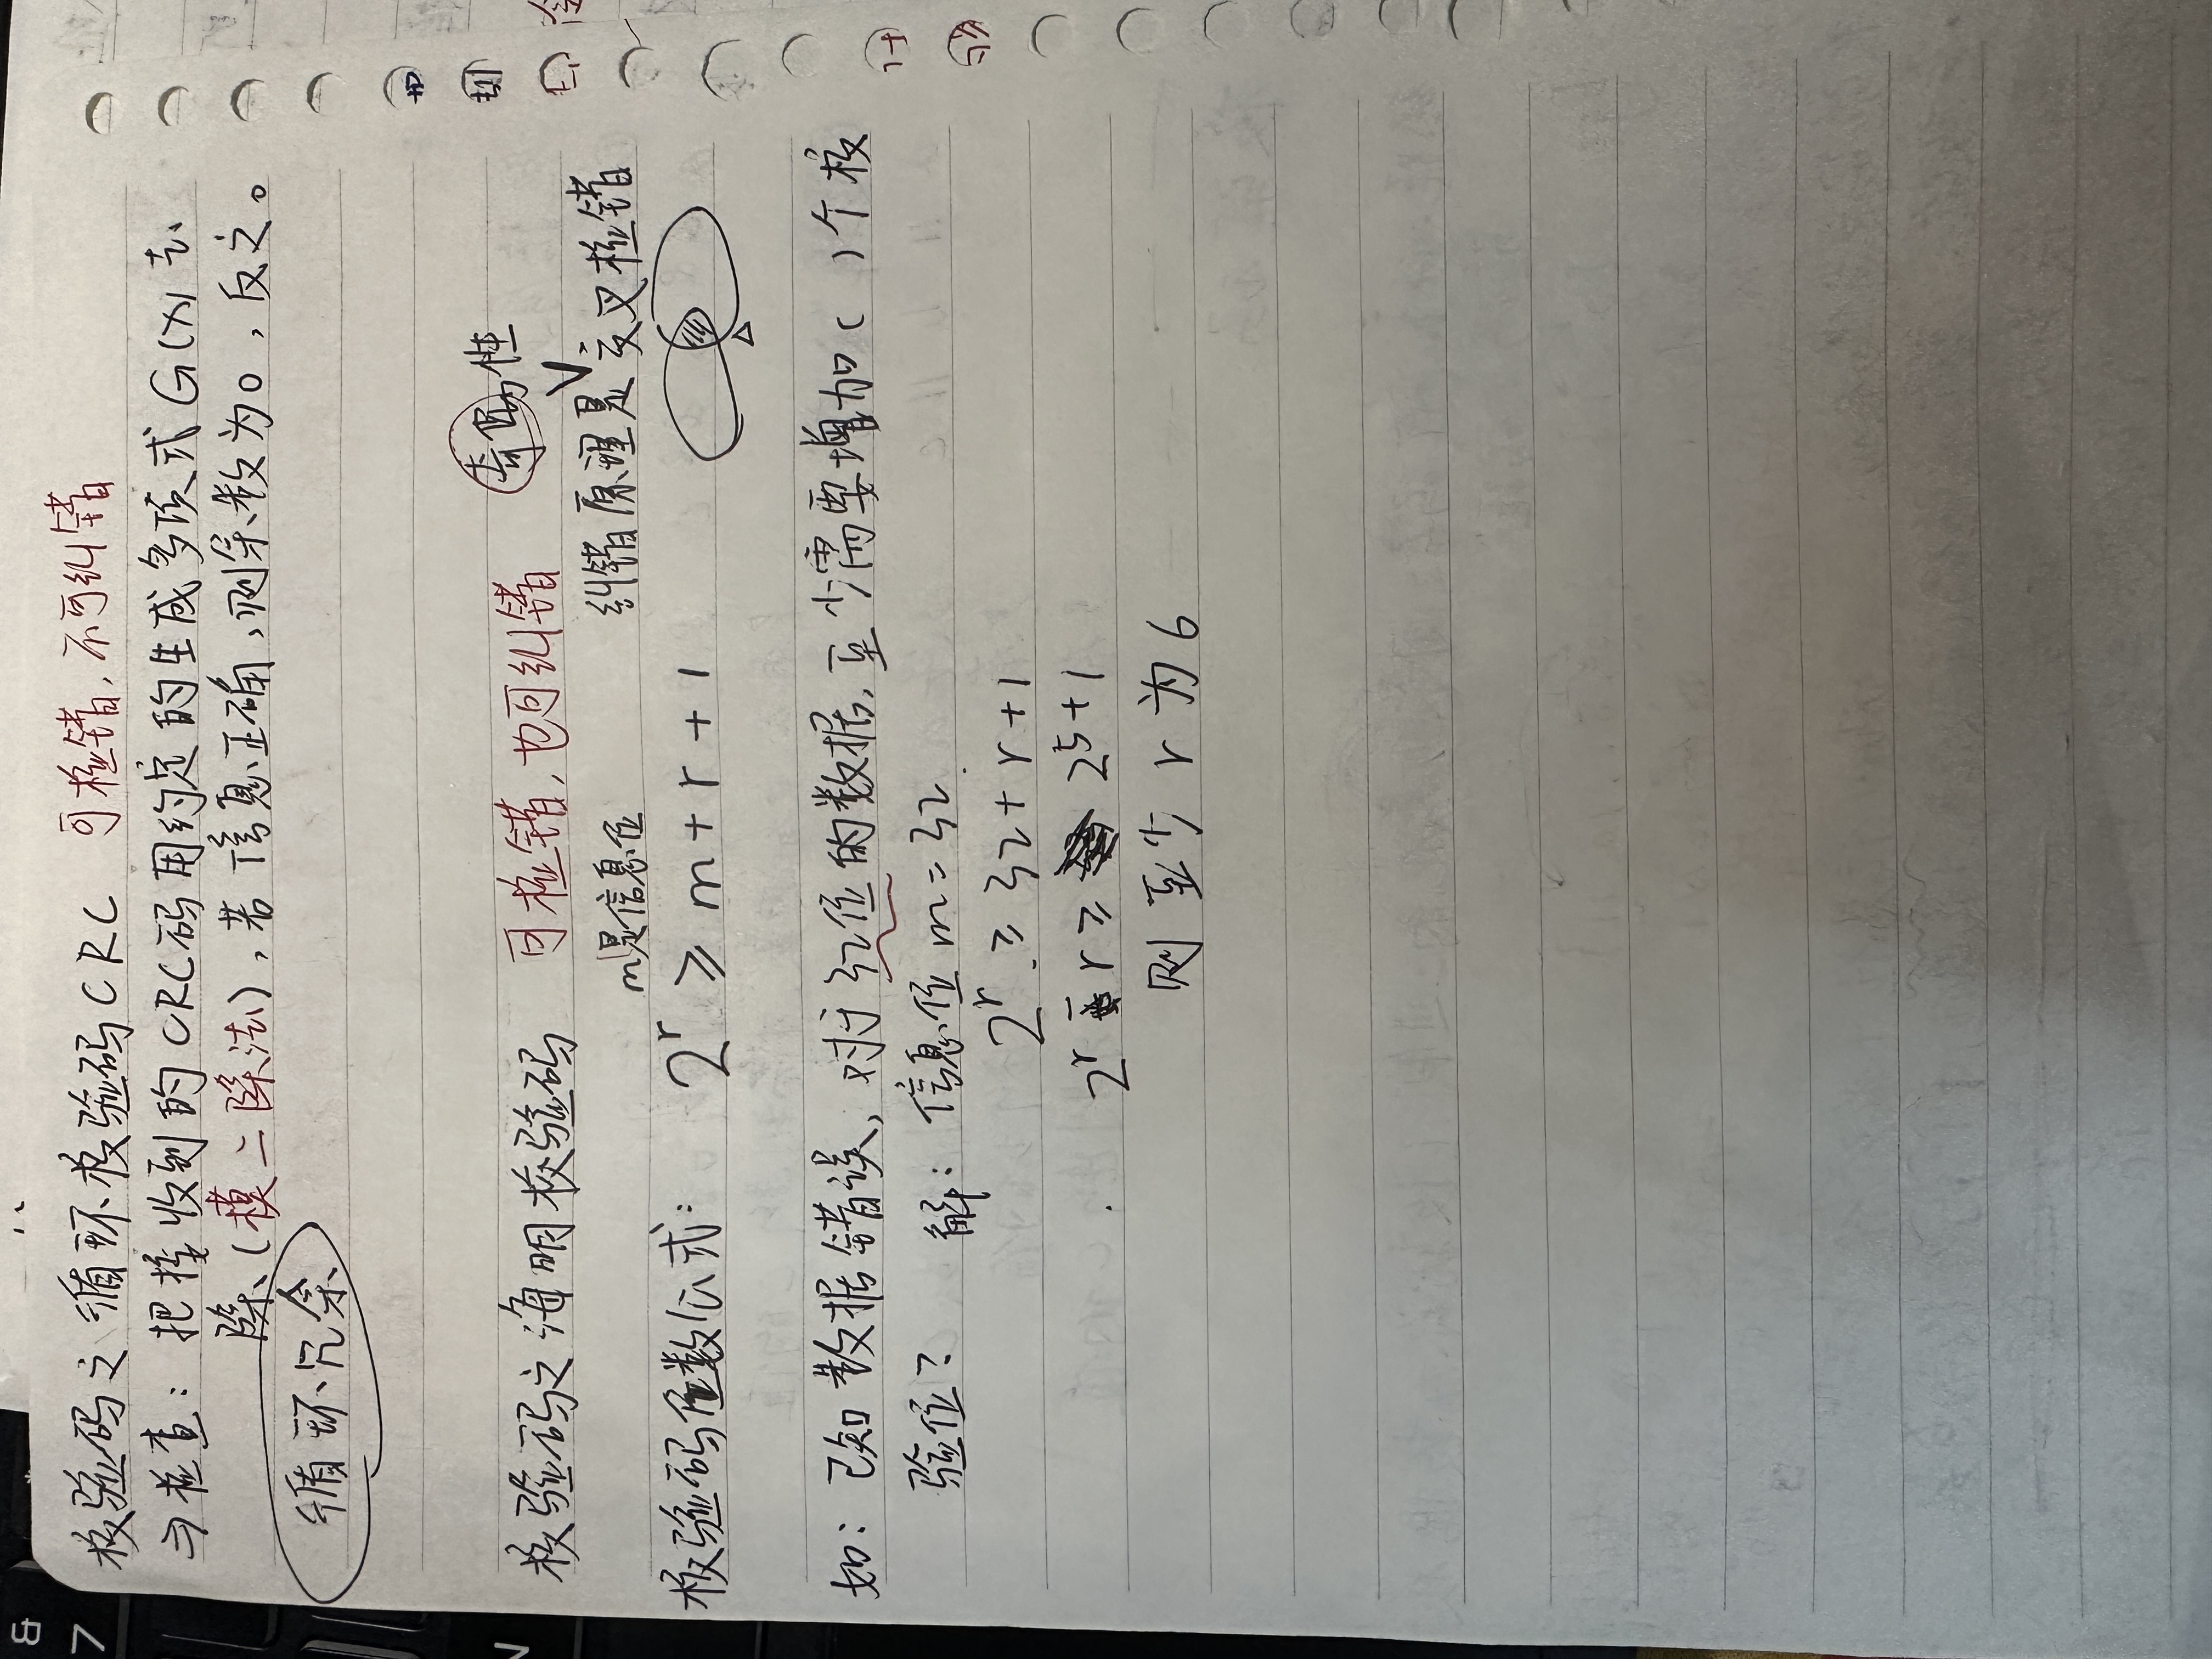 校验码之循环校验码CRC 可检错,不可纠错
⇒检查: 把接收到的CRC码用约定的生成多项式G(x)去
除(模二除法),若信息正确,则余数为0,反之。
循环冗余
奇偶性
校验码之海明校验码 可检错,也可纠错
纠错原理是交叉检错
m是信息位
校验码位数公式: 2^r ≥ m+r+1
如: 已知数据错误,对于32位的数据,至少需要增加( )个校
验位? 解: 信息位m=32
2^r ≥ 32+r+1
2^r - r ≥ 2^5+1
则至少r为6
& 7
N